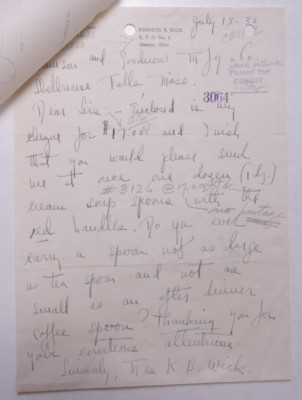 July 13 - 32
KENNETH B. WICK
R. F. D. No. 1
Ohio
and Goodnow Mfg. Co
Shelburne Falls Mass.
3064
Dear Sir: - Enclosed is my
cheque for $17.00 and I wish
that you would please send
me at once one dozen (1 dz.)
#3126 @ 17.00
cream soup spoons with the
no postage
red handles. Do you ever
carry a spoon not as large
as tea spoon and not as
small as an after dinner
coffee spoon? Thanking you for
your courteous attention
Sincerely, Mrs K. B. Wick.